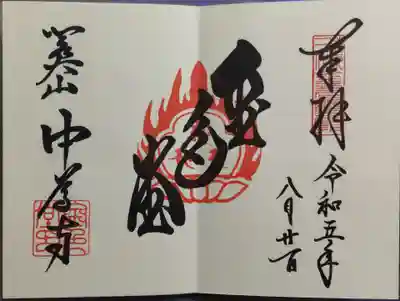 奉拝
令和五年
八月廿一日
金色堂
関山
中尊寺